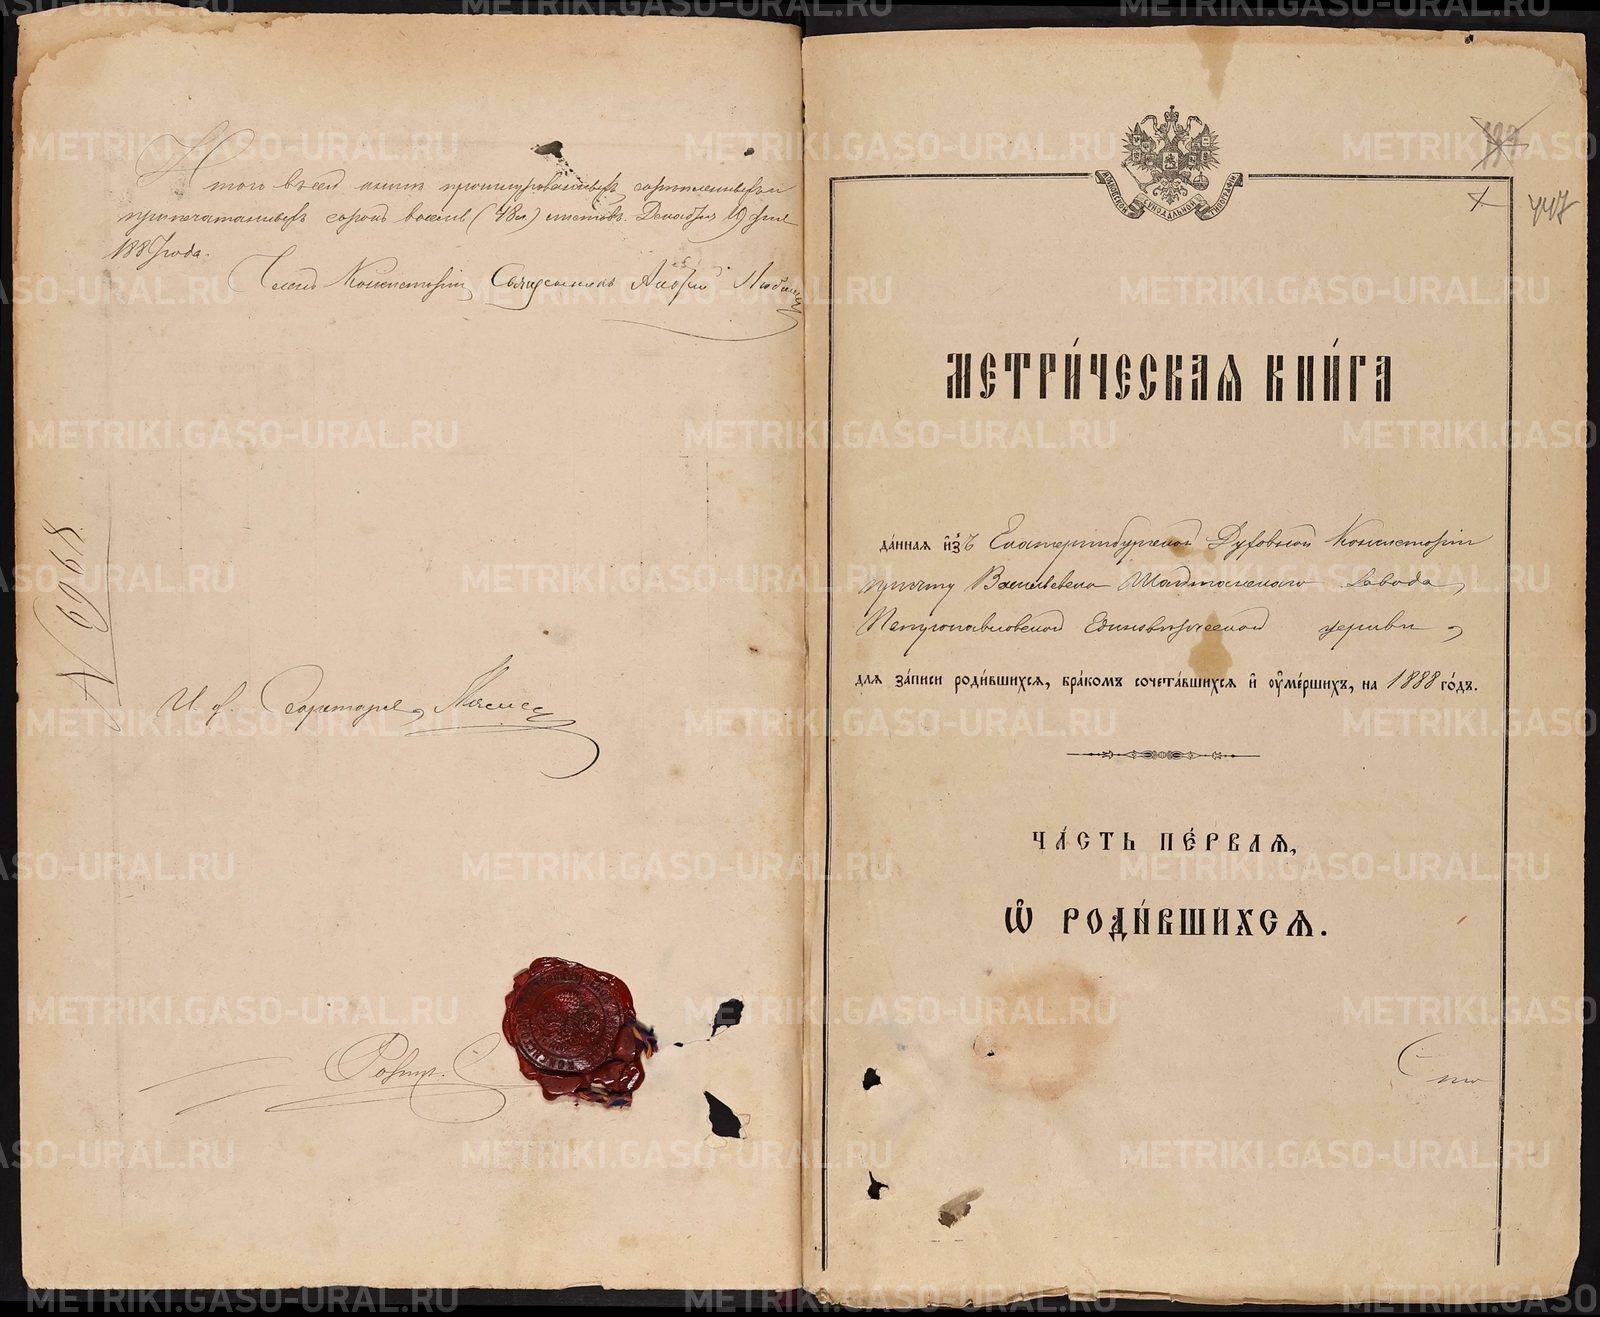 Итого въ сей книгѣ прошнурованныхъ, скрѣпленныхъ и
припечатанныхъ сорокъ восемь (48) листовъ. Декабря 19 дня
1887 года.
Членъ Консисторіи Священникъ
№ 9968
И. д. Секретаря
МОСКОВСКОЙ СѴНОДАЛЬНОЙ ТИПОГРАФІИ
447
МЕТРИ́ЧЕСКАѦ КНИ́ГА
да́нная и҆зъ Екатеринбургской Духовной Консисторіи
причту Васильевско Шайтанского завода,
Петропавловской Единовѣрческой церкви,
для за́писи роди́вшихся, бра́комъ сочета́вшихся и҆ ᲂу҆ме́ршихъ, на 1888 го́дъ.
ЧА́СТЬ ПЕ́РВАѦ,
Ѽ РОДИ́ВШИХСѦ.
METRIKI.GASO-URAL.RU